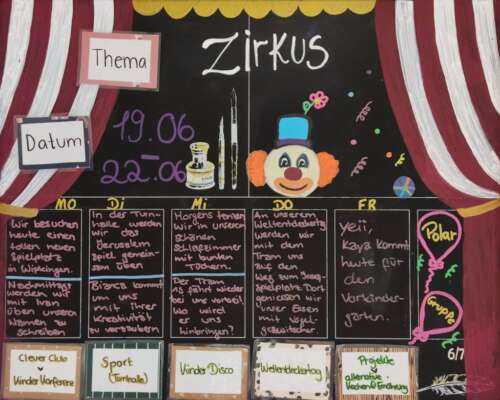 Thema
Zirkus
Datum
19.06
-
22.06
MO
DI
MI
DO
FR
Wir besuchen
heute einen
tollen neuen
Spielplatz
in Wipkingen.
Nachmittags
werden wir
mit Ivan
üben unseren
Namen zu
schreiben
In der Turn-
halle, werden
wir das
Jerusalem
spiel gemein-
sam üben
Bianca kommt
um uns
mit ihrer
Kreativität
zu verzaubern
Morgens tanzen
wir in unserem
schönen
mit bunten
Tüchern.
Der Tram
Pj fährt wieder
bei uns vorbei!
Wo wird
er uns
hinbringen?
An unserem
Weltentdeckertag
werden wir
mit dem
Tram uns
auf den
Weg zum
spielplatz. Dort
geniessen wir
unser Essen
mit Vogel-
gezwitscher.
Yeii,
Kaya kommt
heute für
den
Vorkinder-
garten.
Polar
Gruppe
6/7
Clever Club
Kinder Konferenz
Sport
(Turnhalle)
Kinder Disco
Weltentdeckertag
Projekte
alternative
Kochen & Ernährung